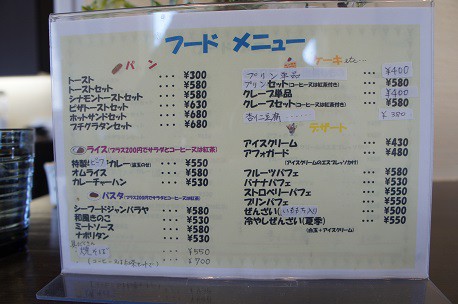 フード メニュー
パン
トースト ・・・ ¥300
トーストセット ・・・ ¥580
シナモントーストセット ・・・ ¥580
ピザトーストセット ・・・ ¥630
ホットサンドセット ・・・ ¥680
プチグラタンセット ・・・ ¥680
ライス(プラス200円でサラダとコーヒー又は紅茶)
特製ビーフカレー ・・・ ¥550
オムライス ・・・ ¥580
カレーチャーハン ・・・ ¥530
パスタ(プラス200円でサラダとコーヒー又は紅茶付き)
シーフードジャンバラヤ ・・・ ¥580
和風きのこ ・・・ ¥530
ミートソース ・・・ ¥580
ナポリタン ・・・ ¥530
焼そば ¥550
¥700
ケーキetc…
プリン単品 ・・・ ¥400
プリンセット(コーヒー又は紅茶付き) ・・・ ¥580
クレープ単品 ・・・ ¥400
クレープセット(コーヒー又は紅茶付き) ・・・ ¥580
杏仁豆腐 ¥380
デザート
アイスクリーム ・・・ ¥430
アフォガード ・・・ ¥480
(アイスクリームのエスプレッソがけ)
フルーツパフェ ・・・ ¥580
バナナパフェ ・・・ ¥530
ストロベリーパフェ ・・・ ¥550
プリンパフェ ・・・ ¥550
ぜんざい(いそもち入り) ・・・ ¥500
冷やしぜんざい(夏季) ・・・ ¥550
(白玉+アイスクリーム)